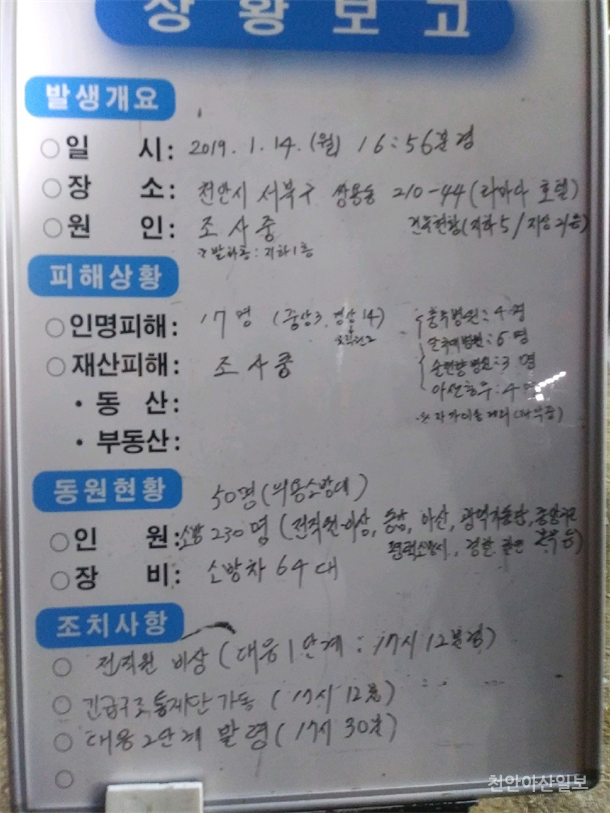 상황보고
발생개요
○일 시: 2019. 1. 14. (월) 16:56분경
○장 소: 천안시 서북구 쌍용동 210-44 (라마다 호텔)
○원 인: 조사중 건축현황(지하5/지상21층)
※발화층: 지하1층
피해상황
○인명피해: 17명 (중상3, 경상14) 충무병원: 4명
소방관2 단국대병원: 6명
○재산피해: 조사중 순천향병원: 3명
・동 산: 아산충무: 4명
・부동산:
동원현황
50명(의용소방대)
○인 원: 소방 230명 (전직원 비상, 중앙, 아산, 광역기동단, 중앙구조
평택소방서, 경찰
○장 비: 소방차 64대
조치사항
○ 전직원 비상 (대응 1단계: 17시 12분경)
○ 긴급구조통제단 가동 (17시 12분)
○ 대응 2단계 발령 (17시 30분)
○
천안아산일보